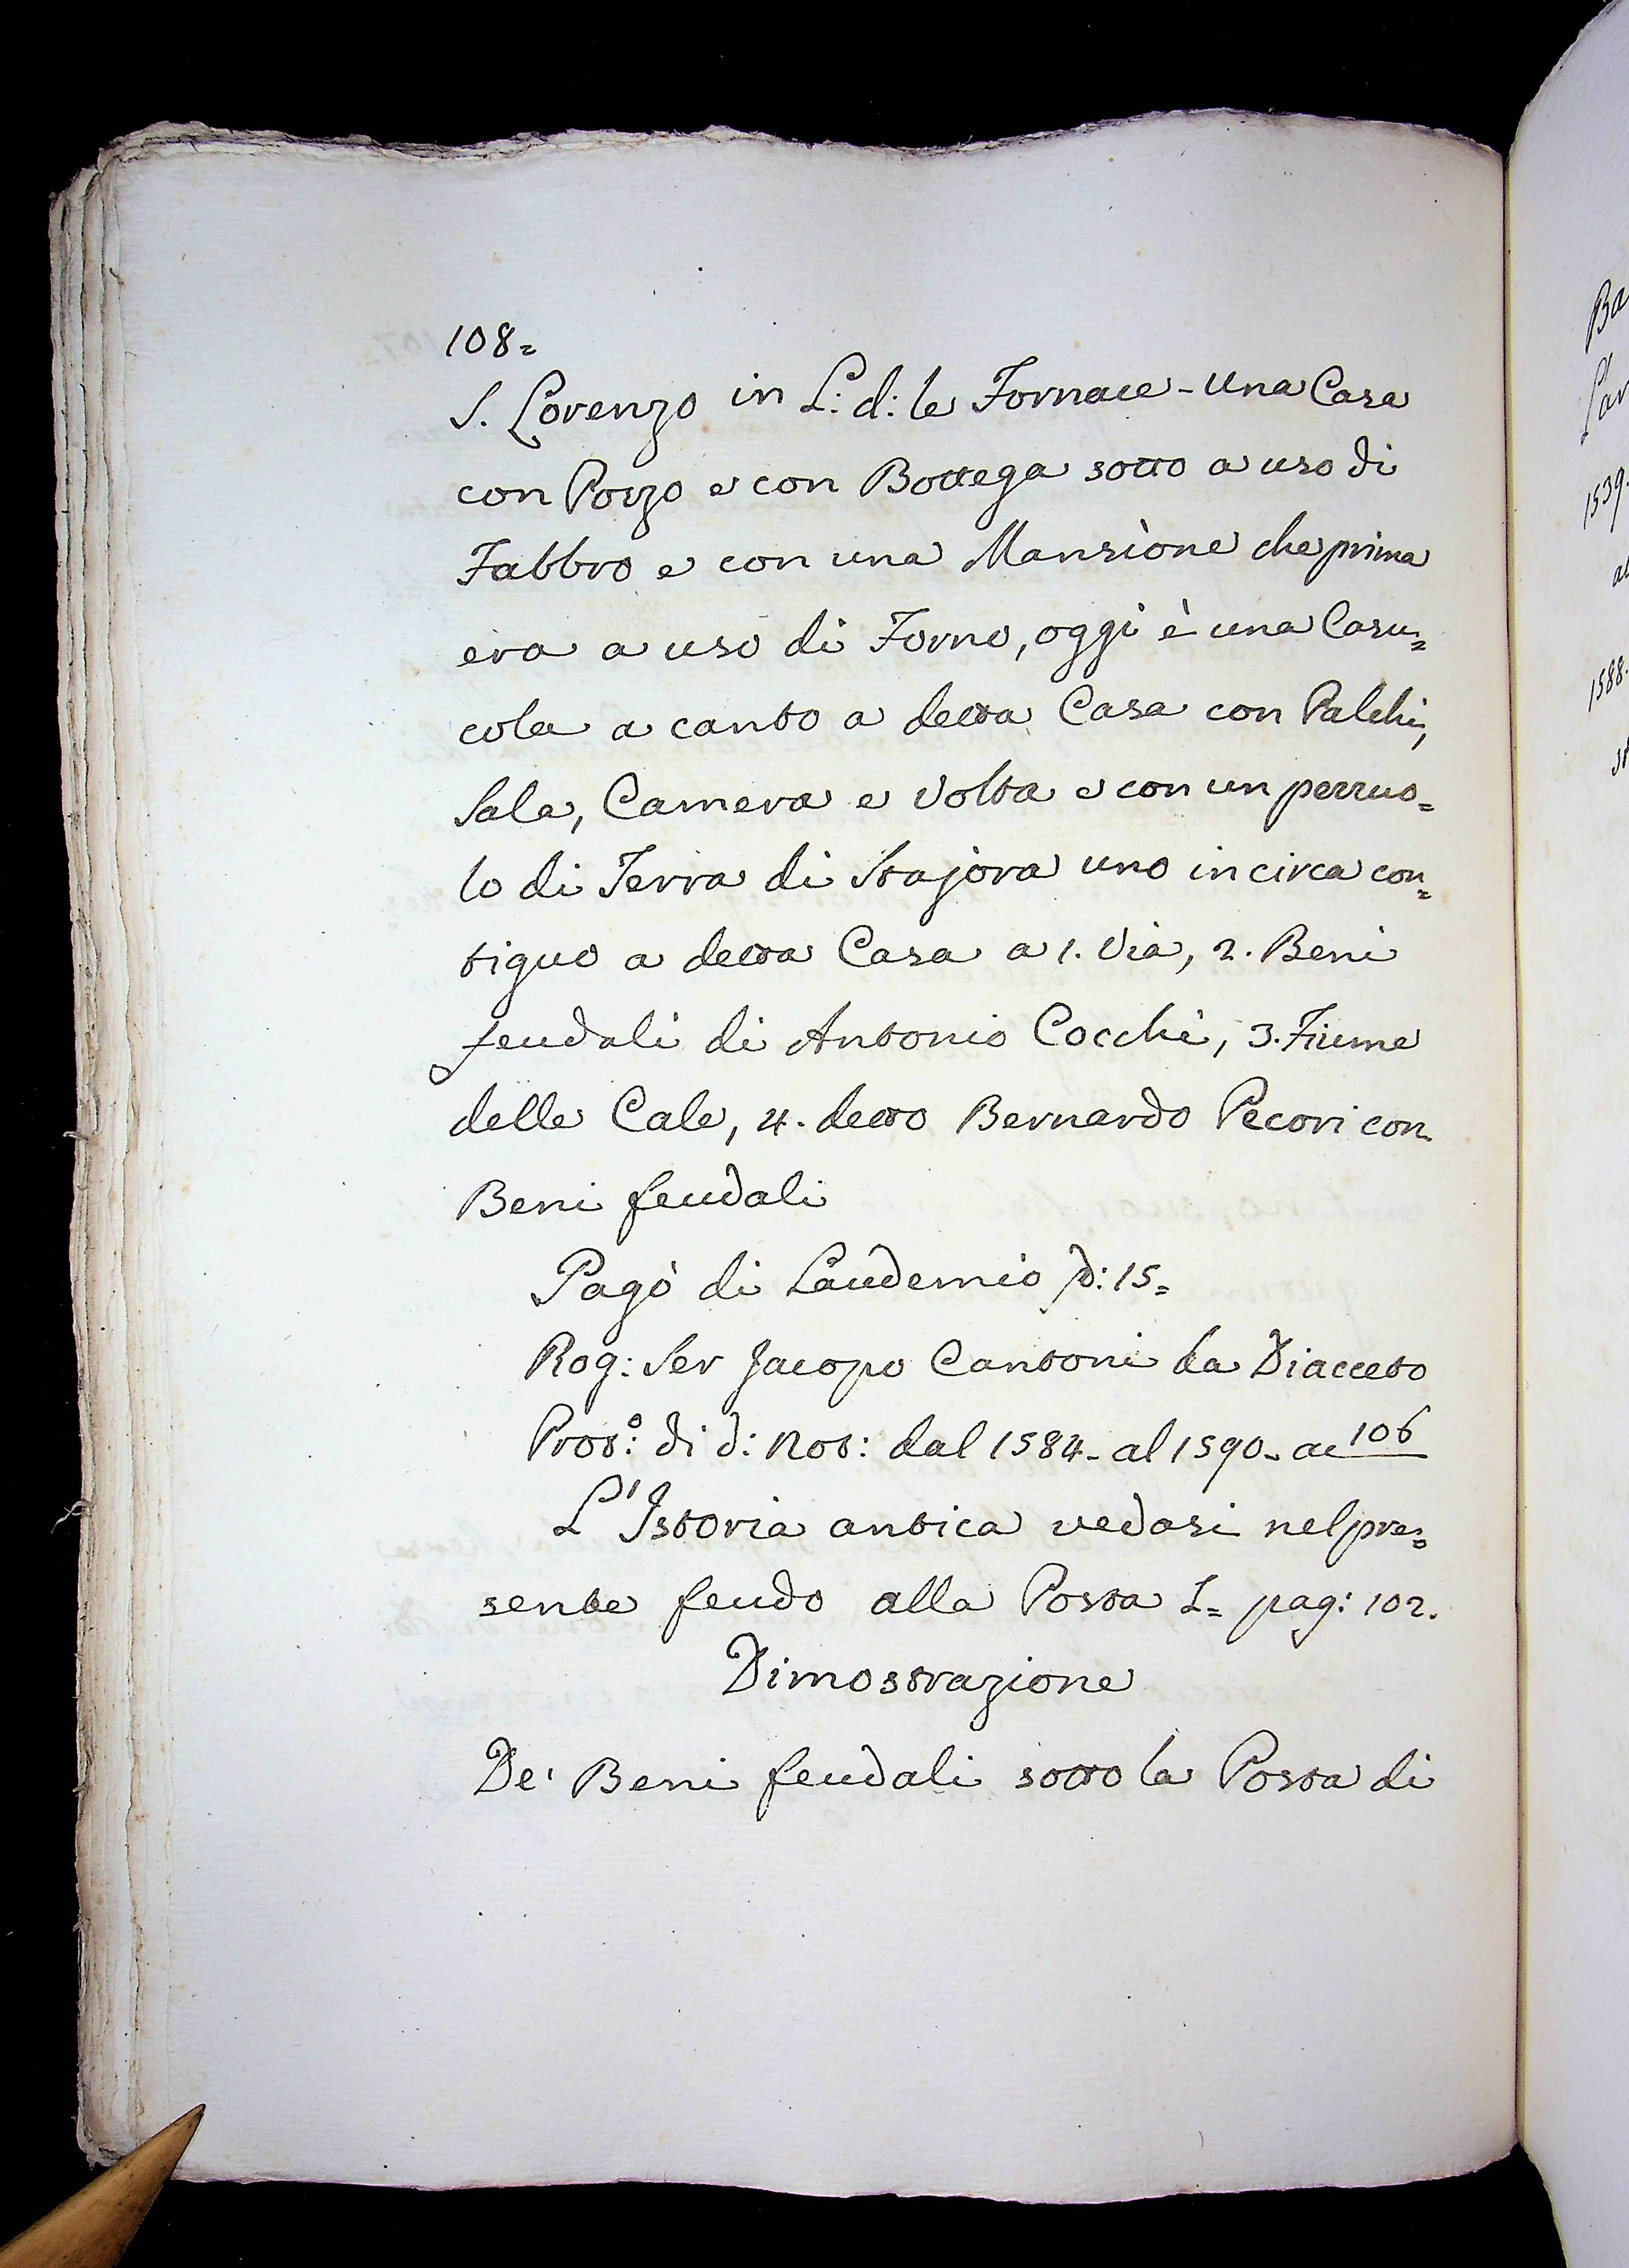 108=
S. Lorenzo in L: d: le Fornace - una Casa
con Pozzo e con Bottega sotto a uso di
Fabbro e con una Mansione che prima
era a uso di Forno, oggi è una Casu=
cola a canto a detta Casa con Palchi,
Sala, Camera e Volta e con un pezzuo=
lo di Terra di Stajora uno in circa con=
tiguo a detta Casa a 1. Via, 2. Beni
feudali di Antonio Cocchi, 3. Fiume
delle Cale, 4. detto Bernardo Pecori con
Beni feudali
Pagò di Laudemio 15=
Rog: Ser Jacopo Cantoni da Diacceto
Prot:º di d: Not: dal 1584. al 1590. ac 106
L'Istoria antica vedasi nel pre=
sente feudo alla Posta L= pag: 102.
Dimostrazione
De' Beni feudali sotto la Posta di
Ba
1539.
1588.